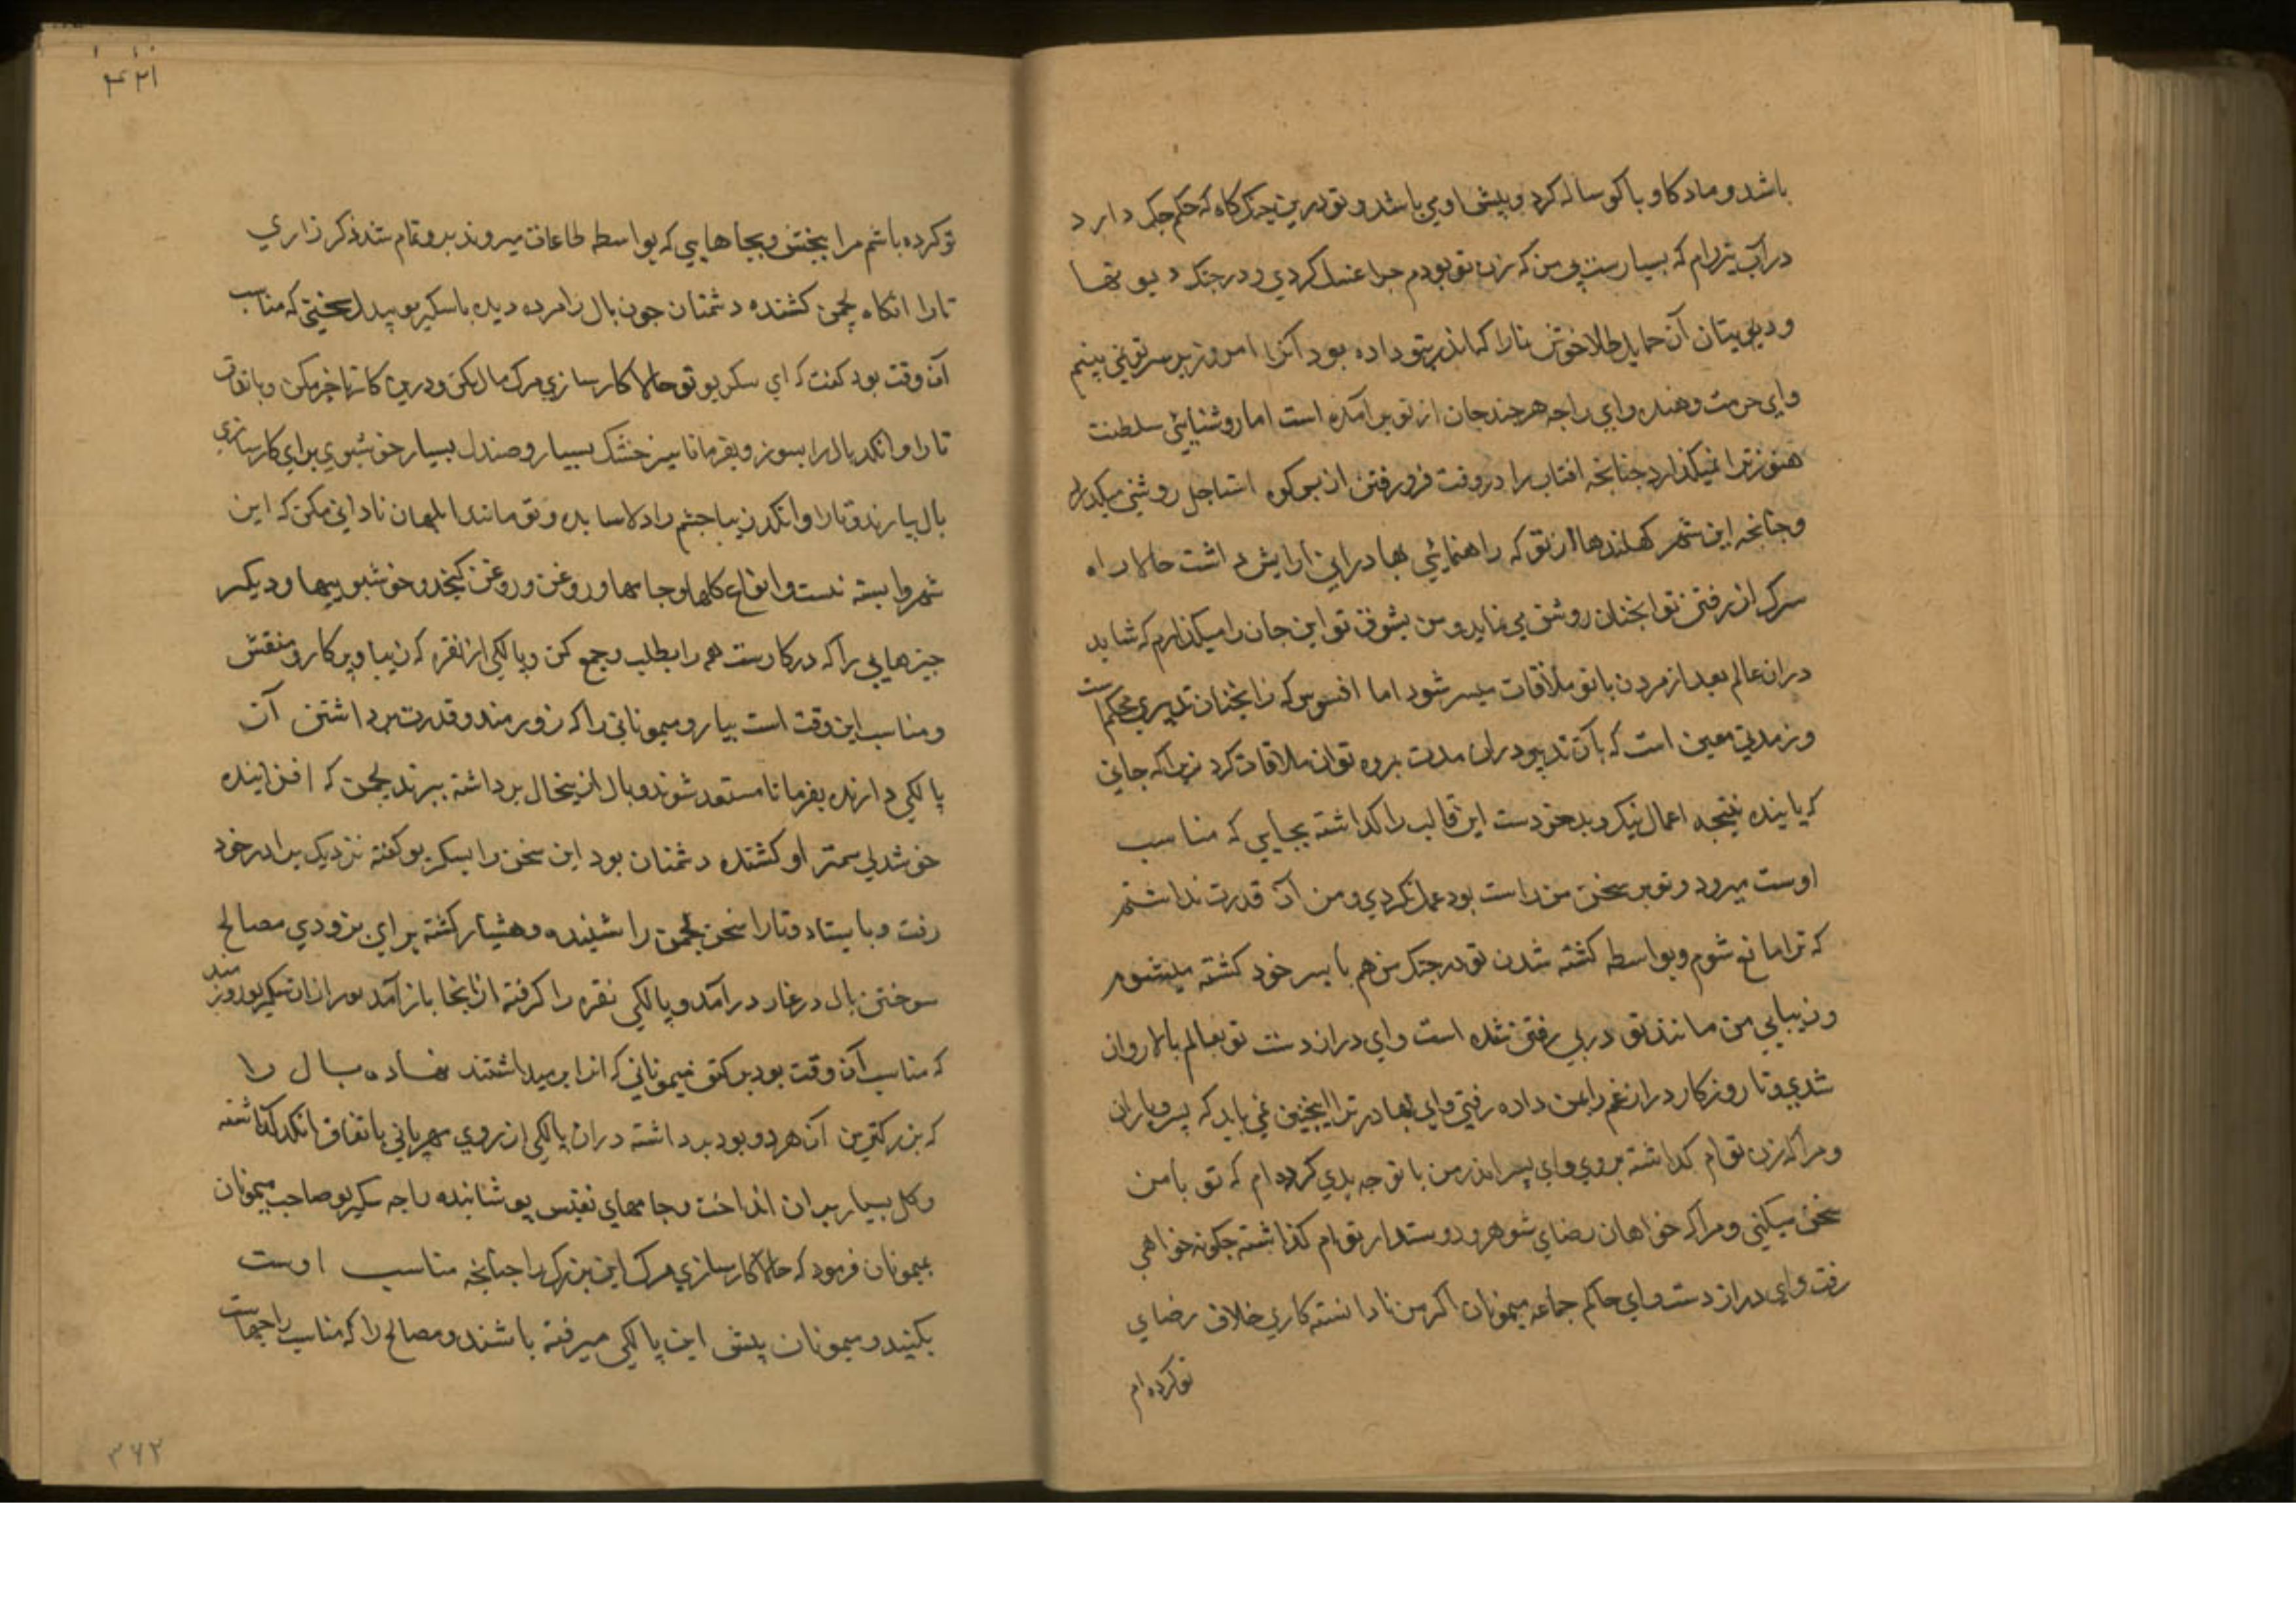 باشد و ماد کاو با کوساله کرد و پیش او می باشد و تو درین جنک کاه که حکم جک دارد
در آب تیرام که بسیارست بی من که زن تو بودم چرا غسل کردی و در جنک دیو تها
و دیو بیتان آن حمایل طلا خوش نارا که اندر بتو داده بود آنرا امروز بر سر تو نمی بینم
وای حرمت دهنده وای راجه هر چند جان از تو بر آمده است اما روشنایی سلطنت
هنوز ترا نمیکذارد جنانجه افتاب را در وقت فرو رفتن از بس کوه استاجل روشنی میکذارد
وجنانجه این شهر کهکندها از تو که راهنمایی بهادرانی آرایش داشت حالا راه
سرک از رفتن تو انجنان روشن می نماید و من بشوق تو این جان را میکذارم که شاید
دران عالم بعد از مردن با تو ملاقات میسر شود اما افسوس که نه انجنان تدبیری محکم است
و نه مدتی معین است که بآن تدبیر دران مدت بروه توان ملاقات کرد زیرا که جانی
که یابنده نتیجه اعمال نیک و بد خودست این قالب را کذاشته بجایی که مناسب
اوست میرود و تو بر سخن من راست بود عمل نکردی و من آن قدرت نداشتم
که ترا مانع شوم و بواسطه کشته شدن تو در جنک من هم با پسر خود کشته میشوم
و زیبایی من مانند تو در پی رفتن نشده است وای دراز دست تو بعالم بالا روان
شدی و تا روزکار دراز غم را بمن داده رفتی وای بهادر ترا اینجنین نمی باید که پسر و یاران
و مرا که زن توام کذاشته بروی وای پسر اندر من با تو چه بدی کرده ام که تو با من
سخن نمیکنی و مرا که خواهان رضای شوهر و دوستدار توام کذاشته جکونه خواهی
رفت وای دراز دست وای حاکم جماعه میمونان اکر من نادانسته کاری خلاف رضای
تو کرده ام
تو کرده باشم مرا ببخش و بجاهایی که بواسطه طاعات میروند برو تمام شد ذکر زاری
تارا انکاه لچمن کشنده دشمنان جون بال را مرده دید با سکریو بیدل سخنی که مناسب
آن وقت بود کفت که ای سکریو تو حالا کارسازی مرک بال بکن و درین کار تاخیر مکن و باتفاق
تارا و انکد بال را بسوز و بفرما تا هیزم خشک بسیار و صندل بسیار خوشبوی برای کارسازی
بال بیارند و تارا و انکد زیبا جشم را دلاسا بده و تو مانند ابلهان نادانی مکن که این
شهر وابسته تست و انواع کلها و جامها و روغن و روغن کنجد و خوشبوییها و دیکر
چیزهایی را که درکارست همه را بطلب و جمع کن و پالکی از نقره که زیبا و پرکار و منقش
و مناسب این وقت است بیار و میمونانی را که زورمند و قدرت برداشتن آن
پالکی دارند بفرما تا مستعد شوند و بال ازینجال برداشته ببرند لچمن که افزاینده
خوشدلی سمترا و کشنده دشمنان بود این سخن را بسکریو کفته نزدیک برادر خود
رفت و بایستاد و تارا سخن لچمن را شنیده و هشیار کشته برای بزودی مصالح
سوختن بال در غار درآمد و پالکی نقره را کرفته از انجا باز آمد بعد ازان سکریو زورمند
که مناسب آن وقت بود بر کتف میمونانی که انرا برمیداشتند نهاده بال را
که بزرکترین آن هر دو بود برداشته دران پالکی از روی مهربانی باتفاق انکد کذاشته
و کل بسیار بران انداخت و جامهای نفیس پوشانیده راجه سکریو صاحب میمونان
بمیمونان فرمود که حالا کارسازی مرک این بزرک را جنانجه مناسب اوست
بکنید و میمونان پیش این پالکی میرفته باشند و مصالح را که مناسب راجهاست
۳۶۲